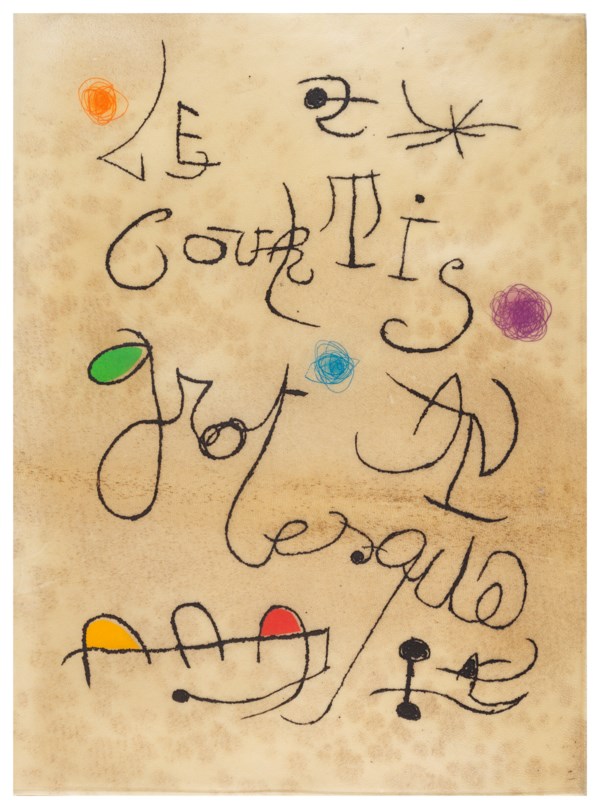 LE
COURTiS
grot
esque